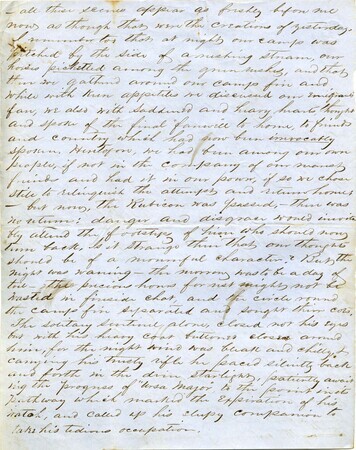 all these scenes appear as freshly before me
now as though they were the creations of yesterday.
I remember too that at night our camp was
pitched by the side of a rushing stream, our
horses picketed among the green mesky, and that
then we all sat around our camp fire and
while with keen appetites we discussed our meagre
fare, we also with saddened and heavy hearts thought
and spoke of the final farewell to home, to friends
and country which had now been irrevocably
spoken. Heretofore, we had been among our own
people, if not in the company of our nearest
friends and had it in our power if so we chose
still to relinquish the attempt, and return homes
- but now, the Rubicon was passed, - there was
no return: danger and disgrace would invari
ably attend the footsteps of him who should now
turn back. Is it strange then that our thoughts
should be of a mournful character? But, the
night was waning - the morrow was to be a day of
toil - the precious hours for rest might not be
wasted in fireside chat, and the circle round
the camp fire separated and sought their cots.
The solitary sentinel alone, closed not his eyes
but with his heavy coat buttoned close around
him, for the night wind was bleak and chilly,
carrying his trusty rifle he paced silently back
and forth in the dim starlight, patiently await
ing the progress of "Ursa Major" to the point in its
pathway which marked the expiration of his
watch, and called up his sleepy companion to
take his tedious occupation.